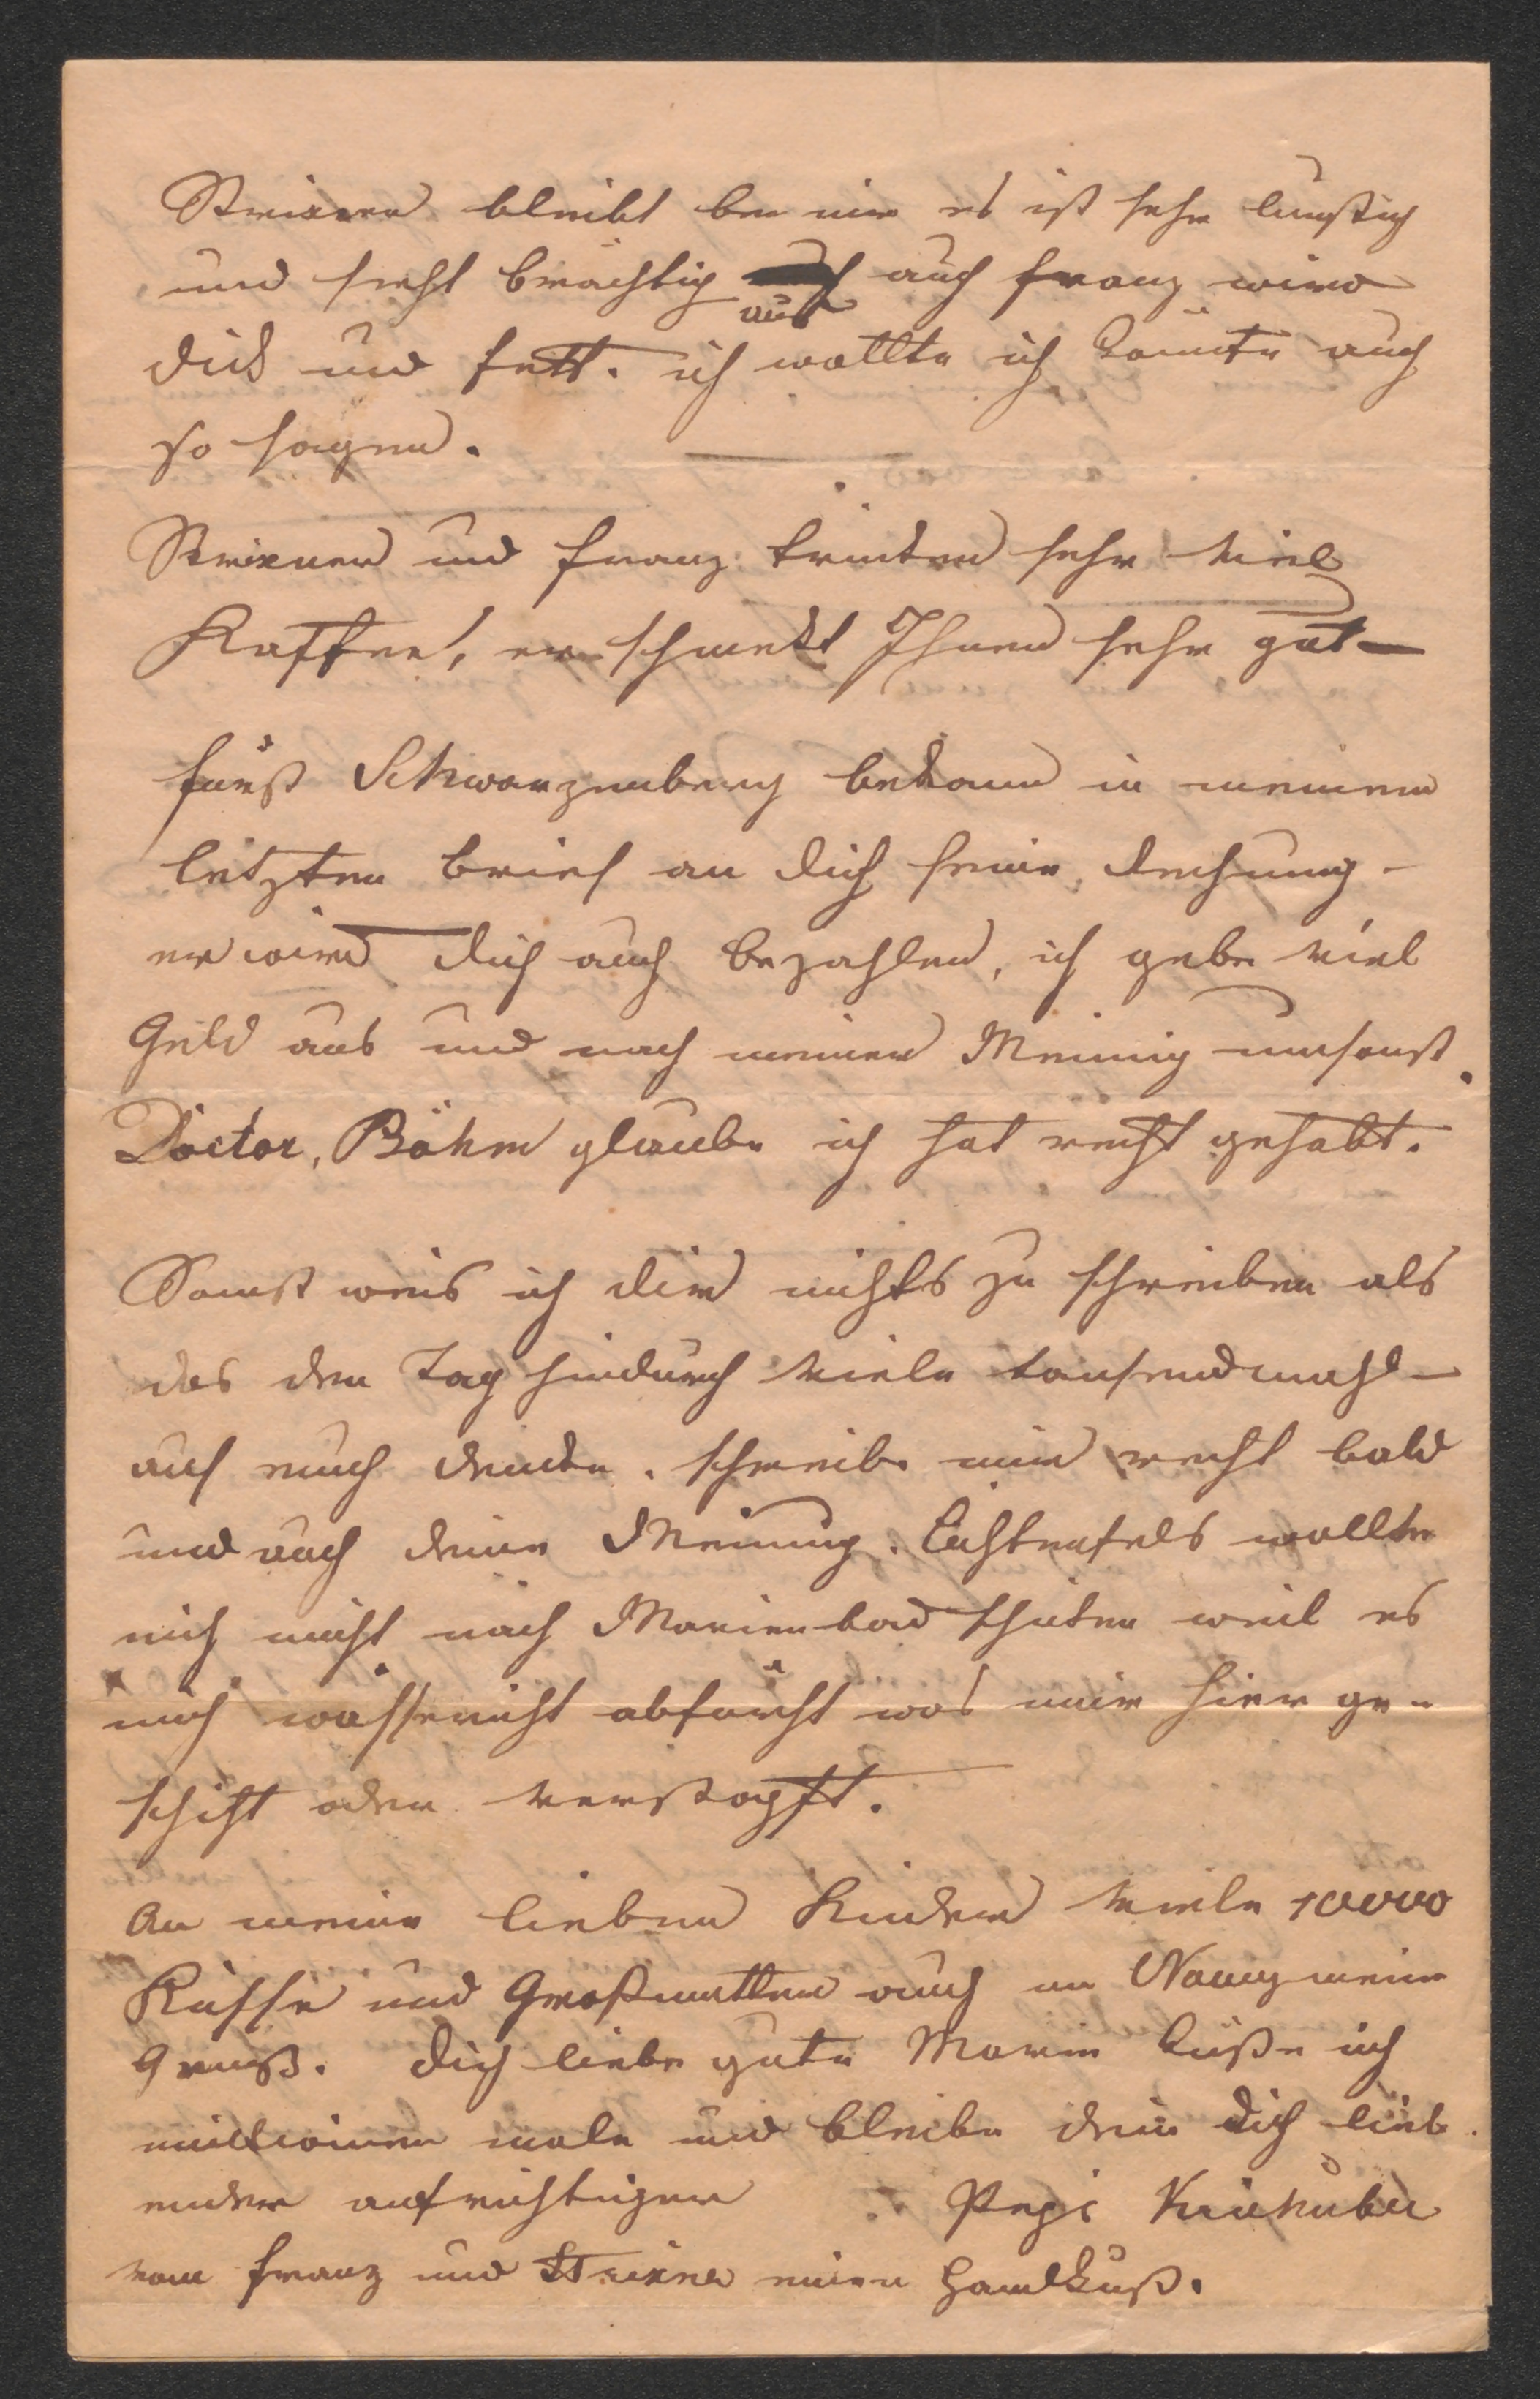 Strixner bleibt bei mir es ist sehr lunstig
und sieht brächtig aus auch Franz wird
dick und fett. ich wollte ich könnte auch
so sagen.
Strixner und Franz trinken sehr viel
Kaffee, er schmekt Ihnen sehr gut—
Fürst Schwarzenberg bekam in meinem
letzten Brief an dich seine Rechnung -
er wird dich auch bezahlen, ich gebe viel
Geld aus und nach meiner Meinig umsonst.
Doctor, Böhm glaube ich hat recht gehabt.
Sonst weis ich dir nichts zu schreiben als
das den Tag hindurch viele tausendmahl —
auf euch denke. schreibe mir recht bald
und auch deine Meinung. Lichtenfels wollte
mich nicht nach Marienbad schiken weil es
mich abführt was mir hier ge-
schiht oder verstopft.
An meine lieben Kinder viele 10000
Küsse und Großmutter auch an Nany meine
Gruß. Dich liebe gute Marie küße ich
millionen male und bleibe dein dich lieb.
ender aufrichtiger Pepi Kriehuber
vom Franz und Strixner einen Handkuß.